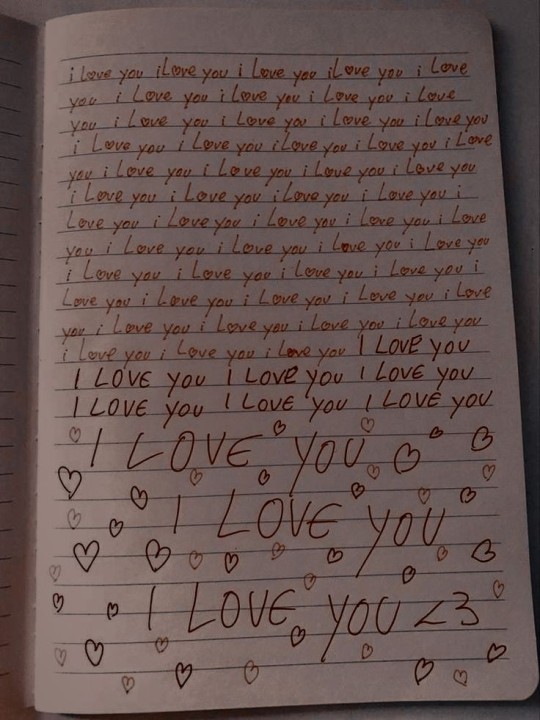 i Love you i Love you i Love you i Love you i Love
you i Love you i Love you i Love you i Love
you i Love you i Love you i Love you i Love you
i Love you i Love you i Love you i Love you i Love
you i Love you i Love you i Love you i Love you
i Love you i Love you i Love you i Love you i
Love you i Love you i Love you i Love you i Love
you i Love you i Love you i Love you i Love you
i Love you i Love you i Love you i Love you i
Love you i Love you i Love you i Love you i Love
you i Love you i Love you i Love you i Love you
i Love you i Love you i Love you I LOVE you
I LOVE you I LOVE you I LOVE you
I LOVE you I LOVE you I LOVE you
I LOVE YOU
I LOVE YOU
I LOVE YOU <3